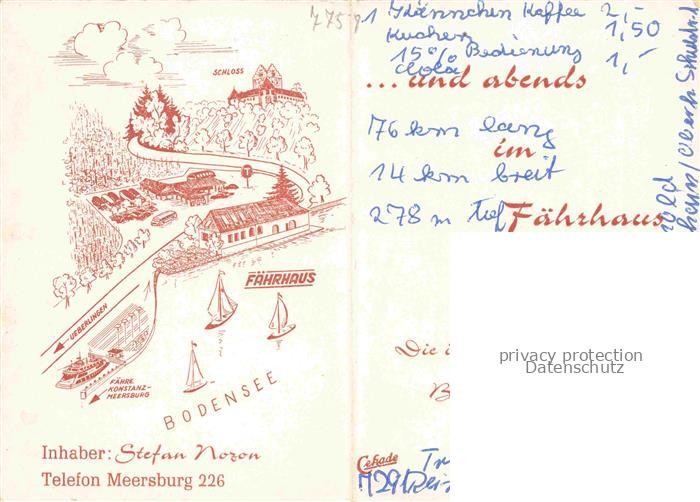 SCHLOSS
FÄHRHAUS
UEBERLINGEN
FÄHRE
KONSTANZ-
MEERSBURG
BODENSEE
Inhaber: Stefan Nozon
Telefon Meersburg 226
775
1 Kännchen Kaffee 2,-
Kuchen 1,50
15% Bedienung
Cola 1,-
... und abends
76 km lang
im
14 km breit
278 m tief
Fährhaus
Die
privacy protection
Datenschutz
B
Cekade